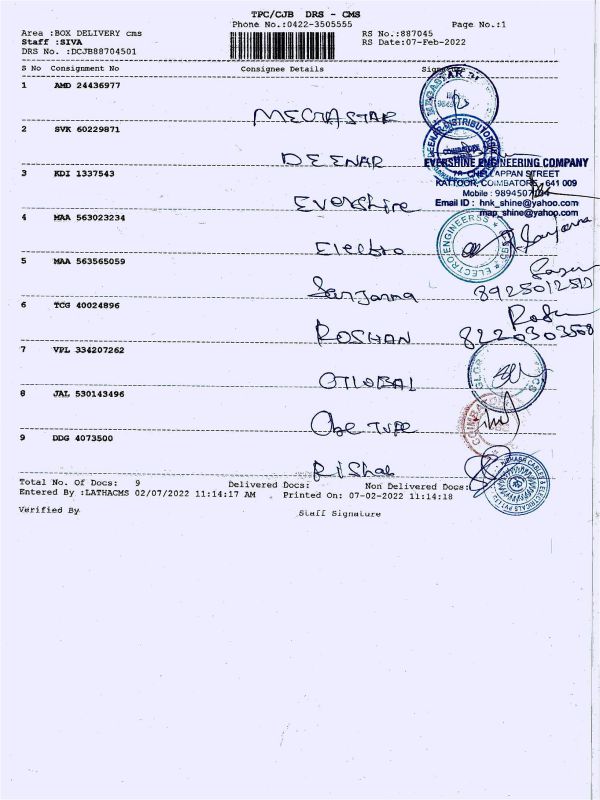 TPC/CJB DRS - CMS
Phone No.:0422-3505555 Page No.:1
Area :BOX DELIVERY cms RS No.:887045
Staff :SIVA RS Date:07-Feb-2022
DRS No. :DCJB88704501
S No Consignment No Consignee Details Signature
1 AMD 24436977
MEGASTAR
2 SVK 60229871
DEENAR
3 KDI 1337543
Evershine
EVERSHINE ENGINEERING COMPANY
7A CHELLAPPAN STREET
KATTOOR, COIMBATORE - 641 009
Mobile : 9894507
Email ID : hnk_shine@yahoo.com
map_shine@yahoo.com
4 MAA 563023234
Electro
ELECTRO ENGINEERSS
Sanjanna
5 MAA 563565059
Sanjanna 8925012510
6 TCG 40024896
ROSHAN 8220303508
7 VPL 334207262
GLOBAL
8 JAL 530143496
9 DDG 4073500
Rishab
RISHABH CABLES & ELECTRICALS PVT LTD
Total No. Of Docs: 9 Delivered Docs: Non Delivered Docs:
Entered By :LATHACMS 02/07/2022 11:14:17 AM Printed On: 07-02-2022 11:14:18
Verified By Staff Signature